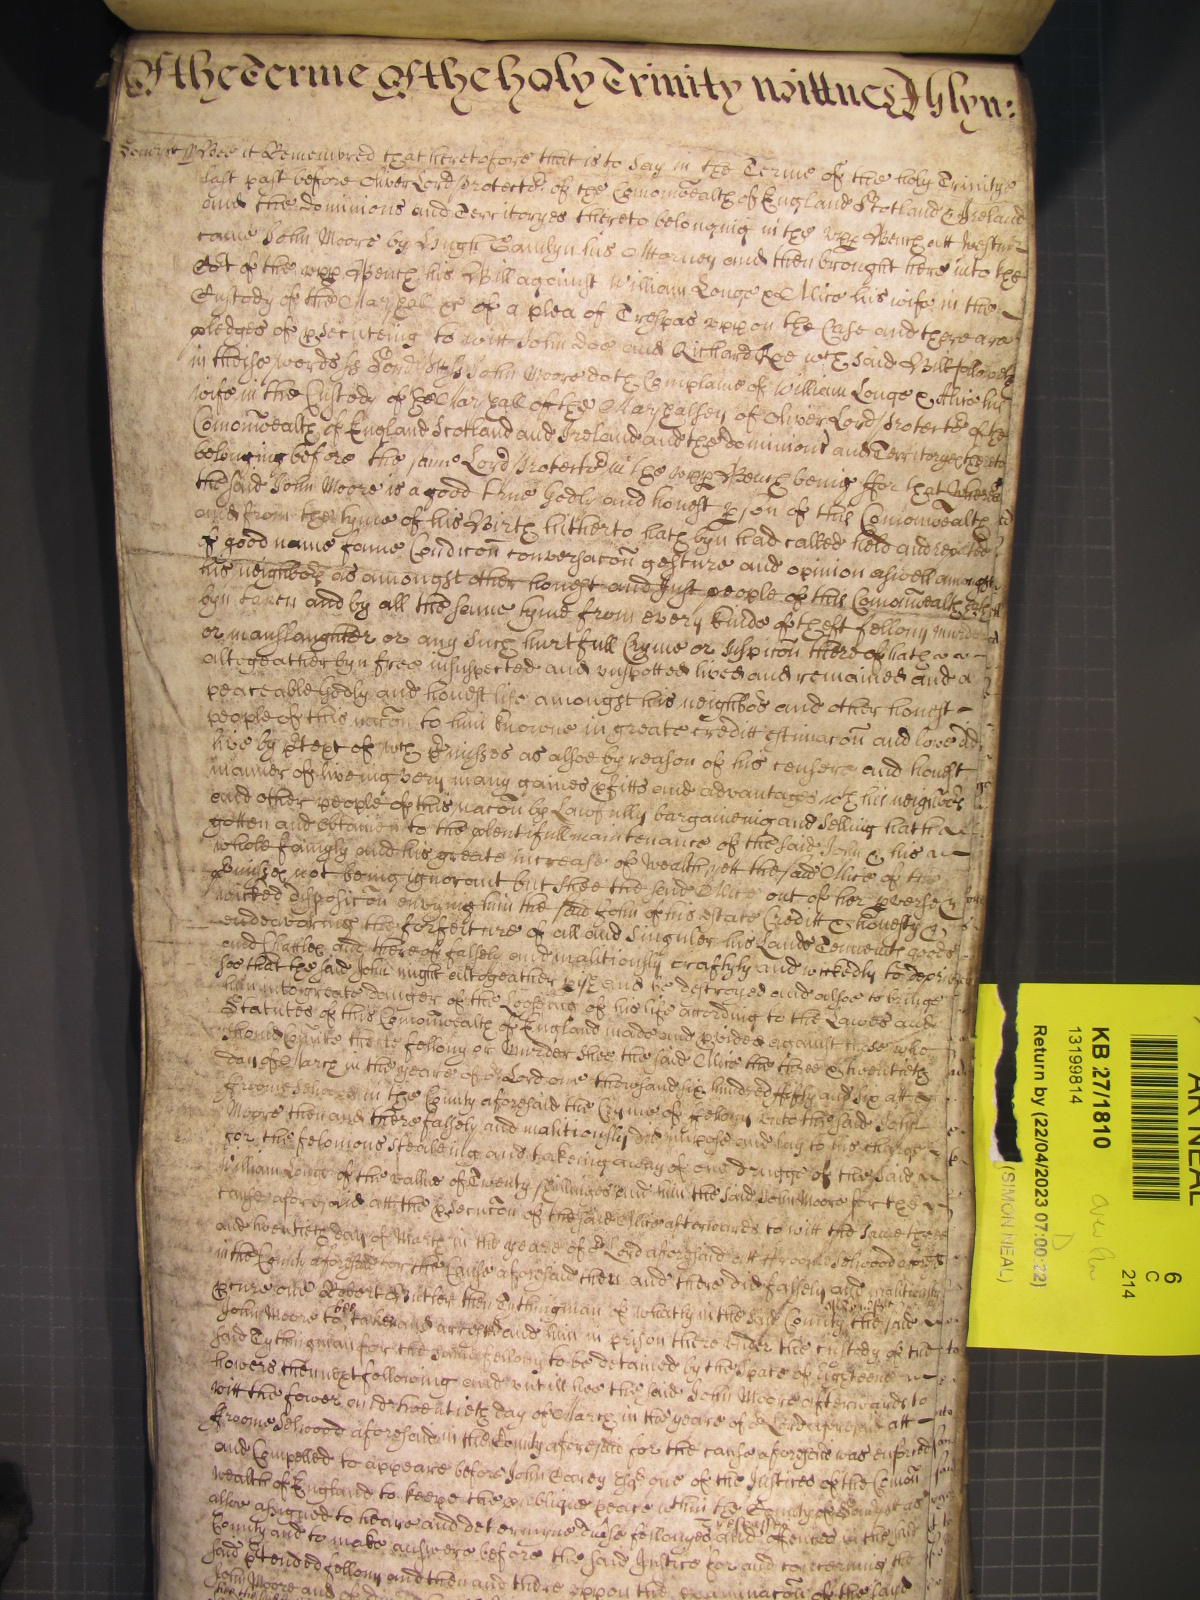 Of the Terme Of the holy Trinity wittnes Ihlyn:
Somerset ss Bee it Remembred that heretofore that is to say in the Terme of the holy Trinitye
last past before Oliver Lord Protectr of the Comonwealth of England Scotland & Ireland
and the Dominions and Territoryes thereto belonging in the vpp Bench att Westmr
came John Moore by Hugh Tamlyn his Attorney and then brought here into the
Cort of the vpp Bench his Bill against William Longe & Alice his wife in the
Custody of the Marshall &c of a plea of Trespas vppon the Case and there are
pledges of prsecuteing to witt John Doe and Richard Roe wch said Bill followeth
in theise words ss Somst ss John Moore doth Complaine of William Longe & Alice his
wife in the Custody of the Marshall of the Marshalsey of Oliver Lord Protectr of the
Comonwealth of England Scotland and Ireland and the Dominions and Territoryes thereto
belonging before the same Lord Protectr in the vpp Bench being ffor that Whereas
the said John Moore is a good true Godly and honest pson of this Comonwealth
and from the tyme of his Birth hitherto hath byn had called held and reputed
of good name fame Condicon conversacon gesture and opinion aswell amongst
his neighbors as amongst other honest and Just people of this Comonwealth hath
byn taken and by all the same tyme from every kinde of theft fellony murder
or manslaughter or any such hurtfull Cryme or suspicon thereof hath
altogeather byn free unsuspected and vnspotted lived and remained and a
peaceable Godly and honest life amongst his neighbors and other honest
people of this nacon to him knowne in greate creditt estimacon and love did
live by prtext of wch Prmisses as alsoe by reason of his sencere and honest
manner of liveing very many gaines pfitts and advantages wth his neighbors
and other people of this nacon by Lawfully bargaineing and selling hath
gotten and obtained to the plentifull maintenance of the said John & his
whole family and his greate increase of wealth yett the said Alice of the
Prmisses not being ignorant but shee the said Alice out of her pverse
wicked disposicon envying him the said John of his estate Creditt & honesty &
endeavoring the forfeiture of all and singuler his Lands Tenemts goods
and Chattles and thereof falsely and malitiously craftyly and wickedly to deprive
soe that the said John might altogeather and be destroyed and alsoe to bringe
him into greate danger of the Looseing of his life according to the Lawes and
Statutes of this Comonwealth of England made and pvided against those who
should Comitt theft fellony or Murder shee the said Alice the three & twentieth
day of March in the yeare of or Lord one thowsand six hundred ffifty and six att
ffroome Selwood in the County aforesaid the Cryme of ffelony vnto the said John
Moore then and there falsely and malitiously did impose and lay to his charge
for the felonious stealeing and takeing away of one drugge of the said
William Longe of the vallue of Twenty shillinges and him the said John Moore for the
cause aforesaid att the prsecucon of the said Alice afterwards to witt the same three
and twentieth day of March in the yeare of or Lord aforesaid att ffroome Selwood aforesd
in the County aforesaid for the cause aforesaid then and there did falsely and malitiously
pcure one Robert Butler then Tythingman of Whatly in the said County the said
John Moore to bee taken and arrested and him in prison there vnder the custody of the
said Tythingman for the same fellony to be detained by the space of Eighteene
howers then next following and vntill hee the said John Moore afterwards to
witt the fower and twentieth day of March in the yeare of or Lord aforesaid att
ffroome Selwood aforesaid in the County aforesaid for the cause aforesaid was enforced
and Compelled to appeare before John Carey Esqr one of the Justices of the Comon
wealth of England to keepe the publique peace within the County of Somerset as
allsoe assigned to heare and determyne those fellonyes trespasses and offences in the said
County and to make answere before the said Justice for and concerning the
said prtended fellony and then and there vppon the examinacon of the said
John Moore and
AR NEAL
KB 27/1810
13199814
Return by (22/04/2023 07:00:22)
(SIMON NEAL)
6
C
214